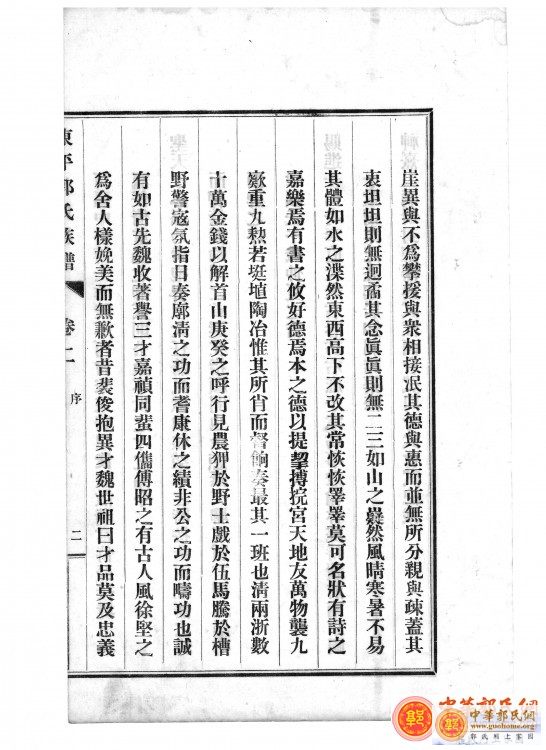 崖異與不爲攀援與衆相接泯其德與惠而並無所分親與疎蓋其
衷坦坦則無迴矞其念眞眞則無二三如山之巍然風晴寒暑不易
其體如水之渫然東西高下不改其常恢恢睪睪莫可名狀有詩之
嘉樂焉有書之攸好德焉本之德以提挈摶捖宮天地友萬物襲九
窾重九熱若挻埴陶冶惟其所肖而督餉奏最其一班也清兩浙數
十萬金錢以解首山庚癸之呼行見農狎於野士戲於伍馬騰於槽
野警寇氛指日奏廓清之功而耆康休之績非公之功而疇功也誠
有如古先魏收著譽三才嘉禎同蜚四儁傅昭之有古人風徐堅之
爲舍人樣娩美而無歉者昔裴俊抱異才魏世祖曰才品莫及忠義
東平郭氏族譜
卷二
序
二
中華郭氏網
中華郭氏網
www.guohome.org